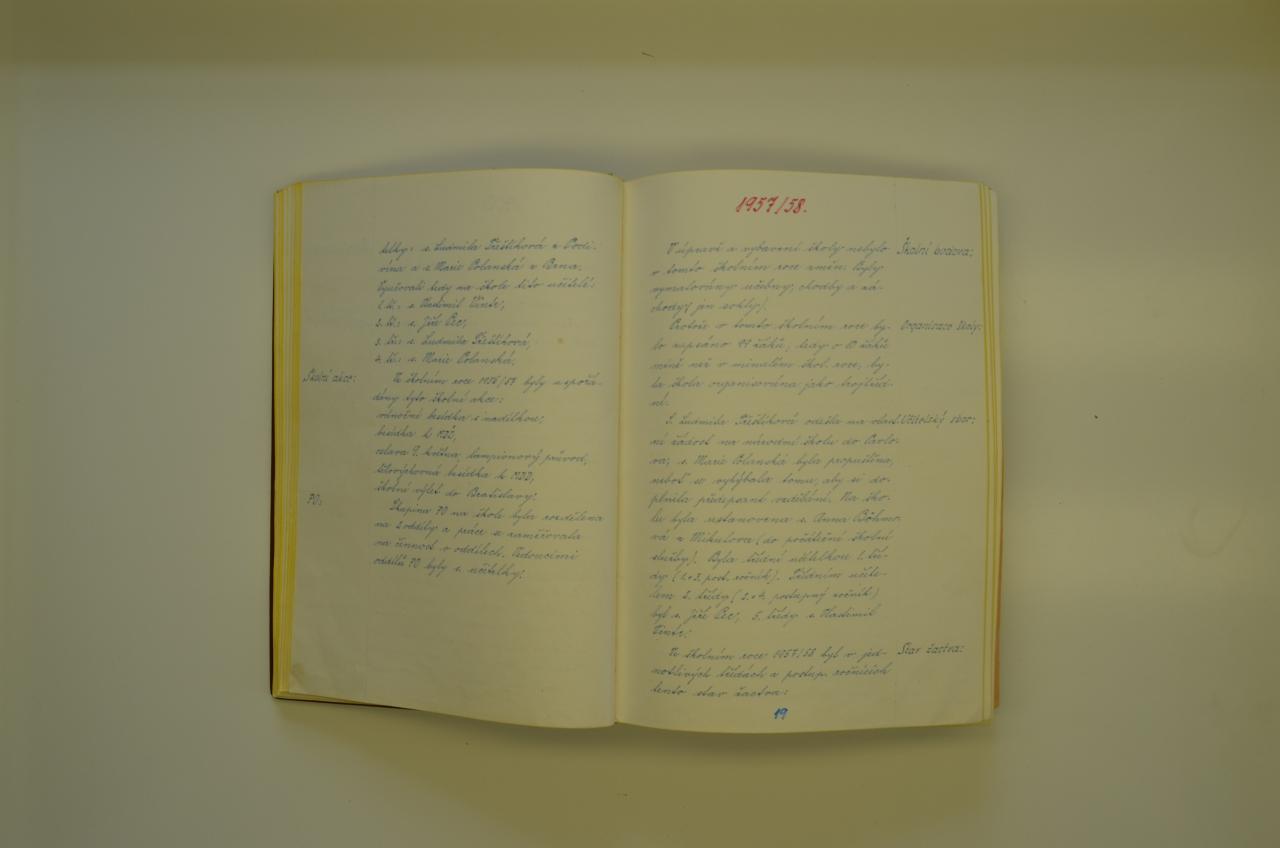 telky: s. Ludmila Třeštíková z Podi-
vína a s. Marie Polanská z Brna.
Vyučovali tedy na škole tito učitelé:
1. tř.: s. Vladimil Vintr,
2. tř.: s. Jiří Pec,
3. tř.: s. Ludmila Třeštíková,
4. tř.: s. Marie Polanská.
Školní akce:
Ve školním roce 1956/57 byly uspořá-
dány tyto školní akce:
vánoční besídka s nadílkou,
besídka k MDŽ,
oslava 9. května, lampionový průvod,
tělovýchovná besídka k MDD,
školní výlet do Bratislavy.
PO:
Skupina PO na škole byla rozdělena
na 2 oddíly a práce se zaměřovala
na činnost v oddílech. Vedoucími
oddílů PO byly s. učitelky.
1957/58.
Školní budova:
V úpravě a vybavení školy nebylo
v tomto školním roce změn. Byly
vymalovány učebny, chodby a zá-
chody (jen sokly).
Organizace školy:
Protože v tomto školním roce by-
lo zapsáno žáků, tedy o 10 žáků
méně než v minulém škol. roce, by-
la škola organisována jako trojtříd-
ní.
Učitelský sbor:
S. Ludmila Třeštíková odešla na vlast-
ní žádost na národní školu do Pavlo-
va, s. Marie Polanská byla propuštěna,
neboť se vyhýbala tomu, aby si do-
plnila předepsané vzdělání. Na ško-
lu byla ustanovena s. Anna Böhmo-
vá z Mikulova (do počáteční školní
služby). Byla třídní učitelkou 1. tří-
dy (1. + 3. post. ročník). Třídním učite-
lem 2. třídy (2. + 4. postupný ročník)
byl s. Jiří Pec, 5. třídy s. Vladimil
Vintr.
Stav žactva:
Ve školním roce 1957/58 byl v jed-
notlivých třídách a postup. ročnících
tento stav žactva:
19